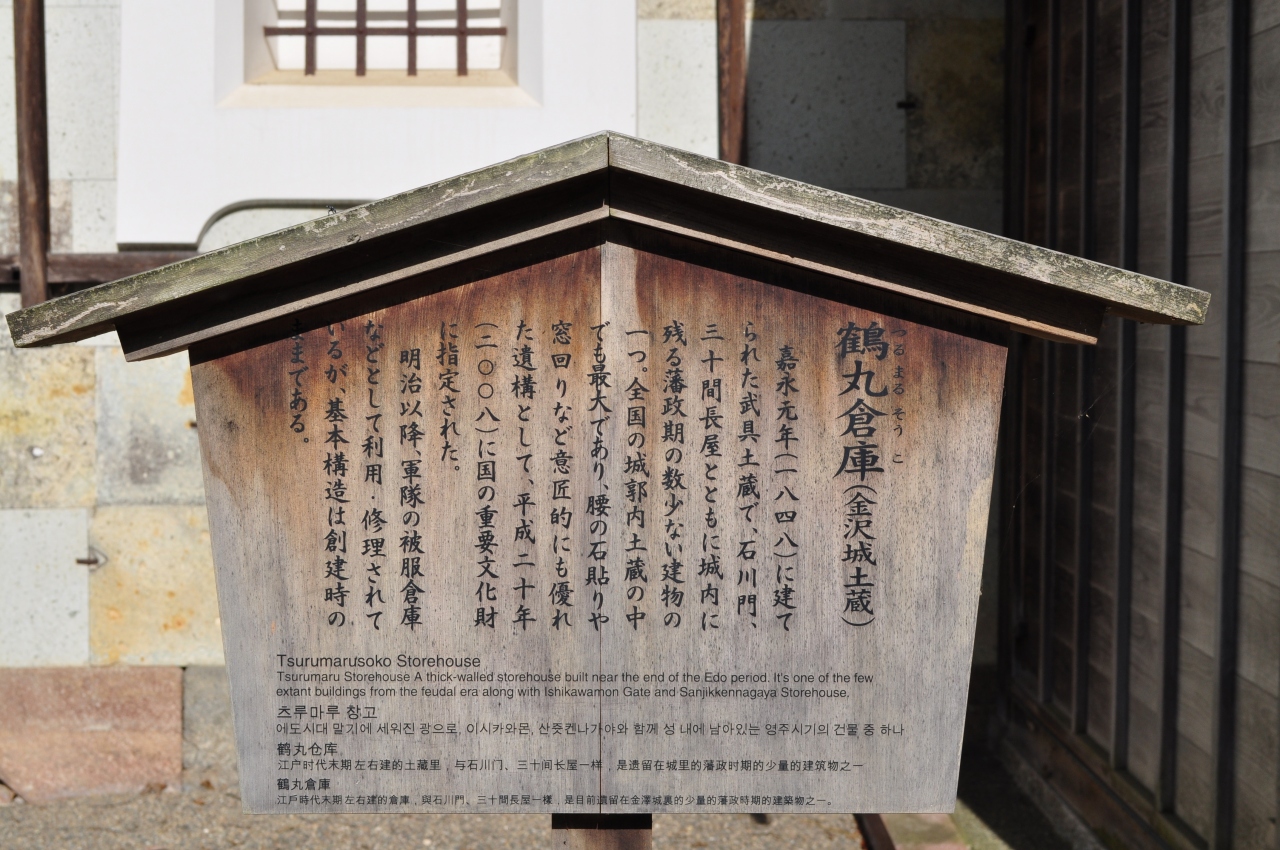 鶴丸倉庫(金沢城土蔵)
つるまるそうこ
嘉永元年(一八四八)に建て
られた武具土蔵で、石川門、
三十間長屋とともに城内に
残る藩政期の数少ない建物の
一つ。全国の城郭内土蔵の中
でも最大であり、腰の石貼りや
窓回りなど意匠的にも優れ
た遺構として、平成二十年
(二〇〇八)に国の重要文化財
に指定された。
明治以降、軍隊の被服倉庫
などとして利用・修理されて
いるが、基本構造は創建時の
ままである。
Tsurumarusoko Storehouse
Tsurumaru Storehouse A thick-walled storehouse built near the end of the Edo period. It's one of the few
extant buildings from the feudal era along with Ishikawamon Gate and Sanjikkennagaya Storehouse.
츠루마루 창고
에도시대 말기에 세워진 광으로, 이시카와몬, 산줏켄나가야와 함께 성 내에 남아있는 영주시기의 건물 중 하나
鹤丸仓库
江户时代末期左右建的土藏里，与石川门、三十间长屋一样，是遗留在城里的藩政时期的少量的建筑物之一
鶴丸倉庫
江戶時代末期左右建的倉庫，與石川門、三十間長屋一樣，是目前遺留在金澤城裏的少量的藩政時期的建築物之一。